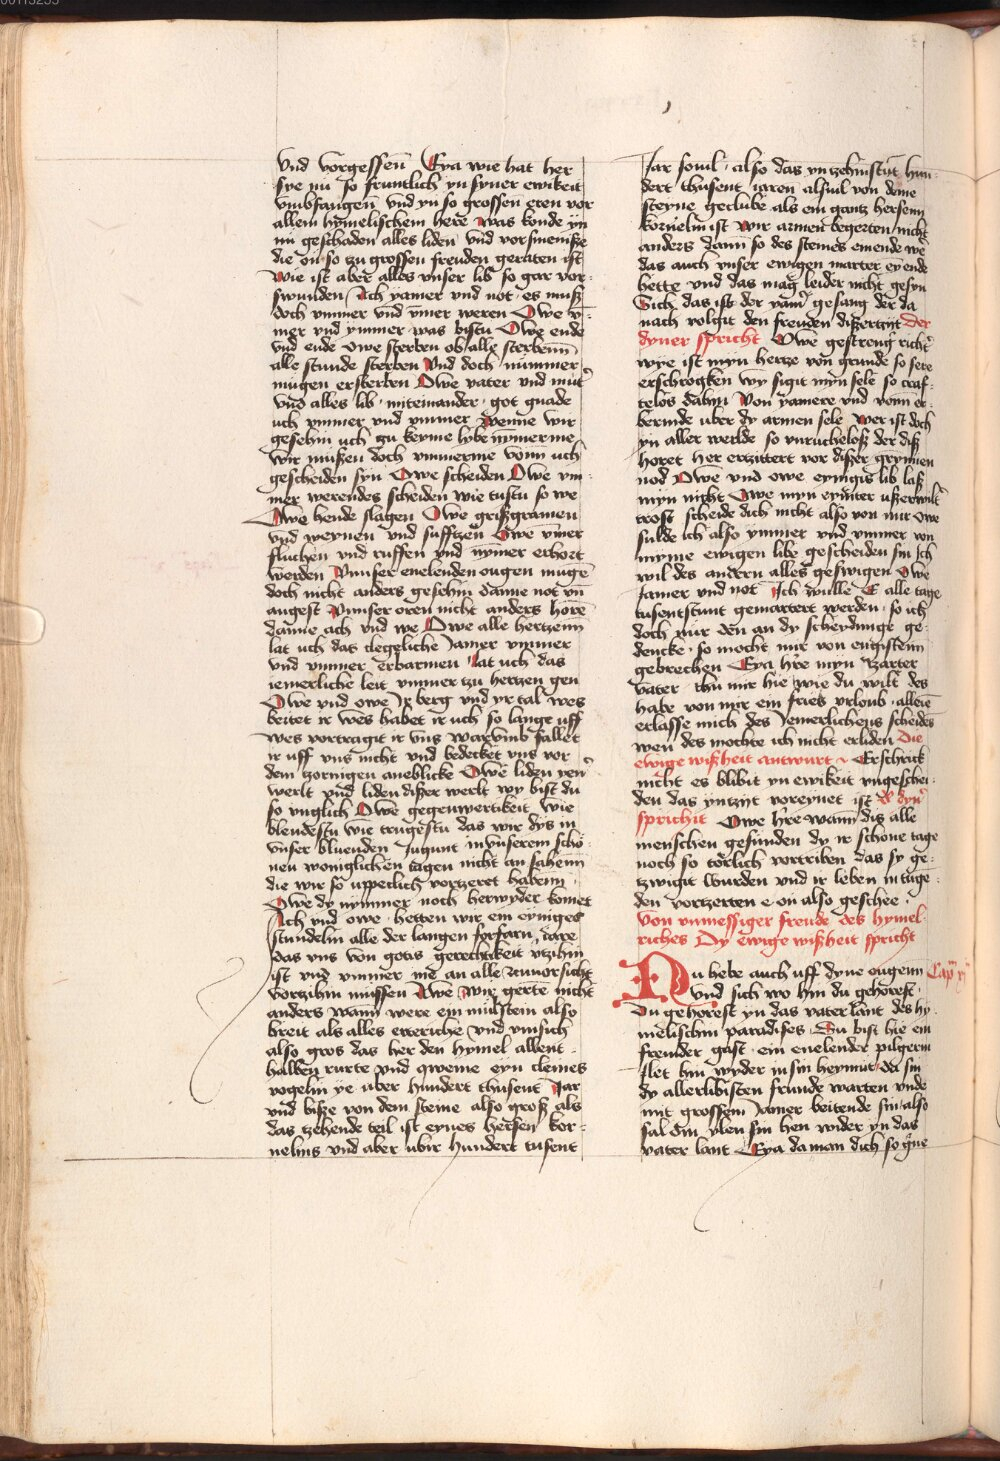 vnd vorgessen Eya wie hat her
sye nu so fruntlich yn syner ewikeit
vmbfangen vnd yn so grossen eren vor
allem hymelischem here was konde yn
nu geschaden alles liden vnd vorsmeniße
die on so tzu grossen freuden geraten ist
Wie ist aber alles vnser lib so gar vor-
swunden Ach yamer vnd not es muß
doch vmmer vnd vmer weren Owe v-
mer vnd ymmer was bistu Owe ende
vnd ende owe sterben ob alle sterbenn
alle stunde sterben Vnd doch nümmer
mugen ersterben Owe vater vnd mut
vnd alles lib miteinander got gnade
uch ymmer vnd ymmer Wenne wir
gesehin uch zu keyne lybe nymerme
wir mußen doch vmmerme vonn uch
gescheiden syn Owe scheiden Owe vm-
mer werendes scheiden wie tustu so we
Owe hende slagen Owe grißgramen
vnd weynen vnd sufftzen Owe vmer
fluchen vnd ruffen vnd nymer erhort
werden Vnnser enelenden ougen muge
doch nicht anders gesehin danne not vn
angest Vnnser oren nicht anders hore
danne ach vnd we Owe alle hertzenn
lat uch das clegeliche Jamer vmmer
vnd vmmer erbarmen Lat uch das
iemerliche leit vmmer tzu hertzen gen
Owe vnd owe Jr berg vnd yr tal wes
beitet ir wes habet ir uch so lange uff
wes vortragit ir vns warvmb fallet
ir uff vns nicht vnd bedecket vns vor
dem zornigen aneblicke Owe liden yen
werlt vnd liden dißer werlt wy bist du
so vnglich Owe gegenwertikeit wie
blendestu wie trugestu das wir dys in
vnser bluenden Jugunt in vnserem scho-
nen woniglichen tagen nicht an sahenn
die wir so uppeclich vortzeret habenn
Owe dy nymmer noch herwyder komet
Ach vnd owe hetten wir ein eyniges
stundelin alle der langen forfarn iare
das vns von gotis gerechtikeit vtzihin
ist vnd vmmer me an alle zcuuorsicht
vortzihin müssen Owe wir gerte nicht
anders wann were ein mülstein also
breit als alles ertteriche vnd vmsich
also gros das her den hymel allent-
halben rurte vnd qweme eyn cleines
vogelin ye uber hundert thusent Jar
vnd biße von dem steine also groß als
das tzehende teil ist eynes hersen kor-
nelins vnd aber ubir hundert tusent
Jar souil also das yn tzehinstunt hun-
dert thusent iaren alsuil von deme
steyne geclube als ein gantz hersenn
kornelin ist wir armen begerten nicht
anders dann so des steines ein ende we
das auch vnser ewigen marter ey ende
hette vnd das mag leider nicht gesyn
Sich das ist der yamer gesang der da
nach volgit den freuden dißer tzyt Der
dyner spricht Owe gestreng richter
wye ist myn hertze von grunde so sere
erschrogken wy sigit myn sele so craf-
telos dahin Von yamere vnd vonn er-
bermde uber dy armen sele wer ist doch
yn aller werlde so vnrucheloß der diß
horet her ertzittert vor dißer grymmen
nod Owe vnd owe eynigis lib laß
myn nicht Owe myn eyniger ußerwelt
trost scheide dich nicht also von mir owe
sulde ich also ymmer vnd ymmer von
myme ewigen libe gescheiden sin Ich
wil des andern alles geswigen Owe
Jamer vnd not Ich wulle E alle tage
tusentstunt gemartert werden so ich
doch mir den an dy scheydunge ge-
dencke so mocht mir von engistenn
gebrechen Eya hre myn tzarter
vater thu mir hie wie du wilt des
habe von mir ein fries vrloub alleie
erlasse mich des Jemerlichens scheides
wen des mochte ich nicht erliden Die
ewige wißheit antwurt Erschrick
nicht es blibit yn ewikeit vngeschei-
den das yn tzyt voreynet ist D dyn
sprichit Owe hre wann diß alle
menschen gesünden dy ir schone tage
noch so torlich vortriben das sy ge-
tzwigit wurden vnd ir leben in tuge-
den vortzerten e on also geschee
Von vnmessiger freude des hymel-
riches Dy ewige wißheit spricht
Nu hebe auch uff dyne ougenn
vnd sich wo hin du gehorest
Du gehorest yn das vaterlant des hy-
melischin paradises Du bist hie ein
fremder gast ein enelender pilgerin
Jlet hin wyder in sin heymüt da sin
dy allerlibisten frunde warten vnde
mit grossem Jamer beitende sin also
sal din ylen sin hen wider yn das
vater lant Eya da man dich so gne
Cap xj